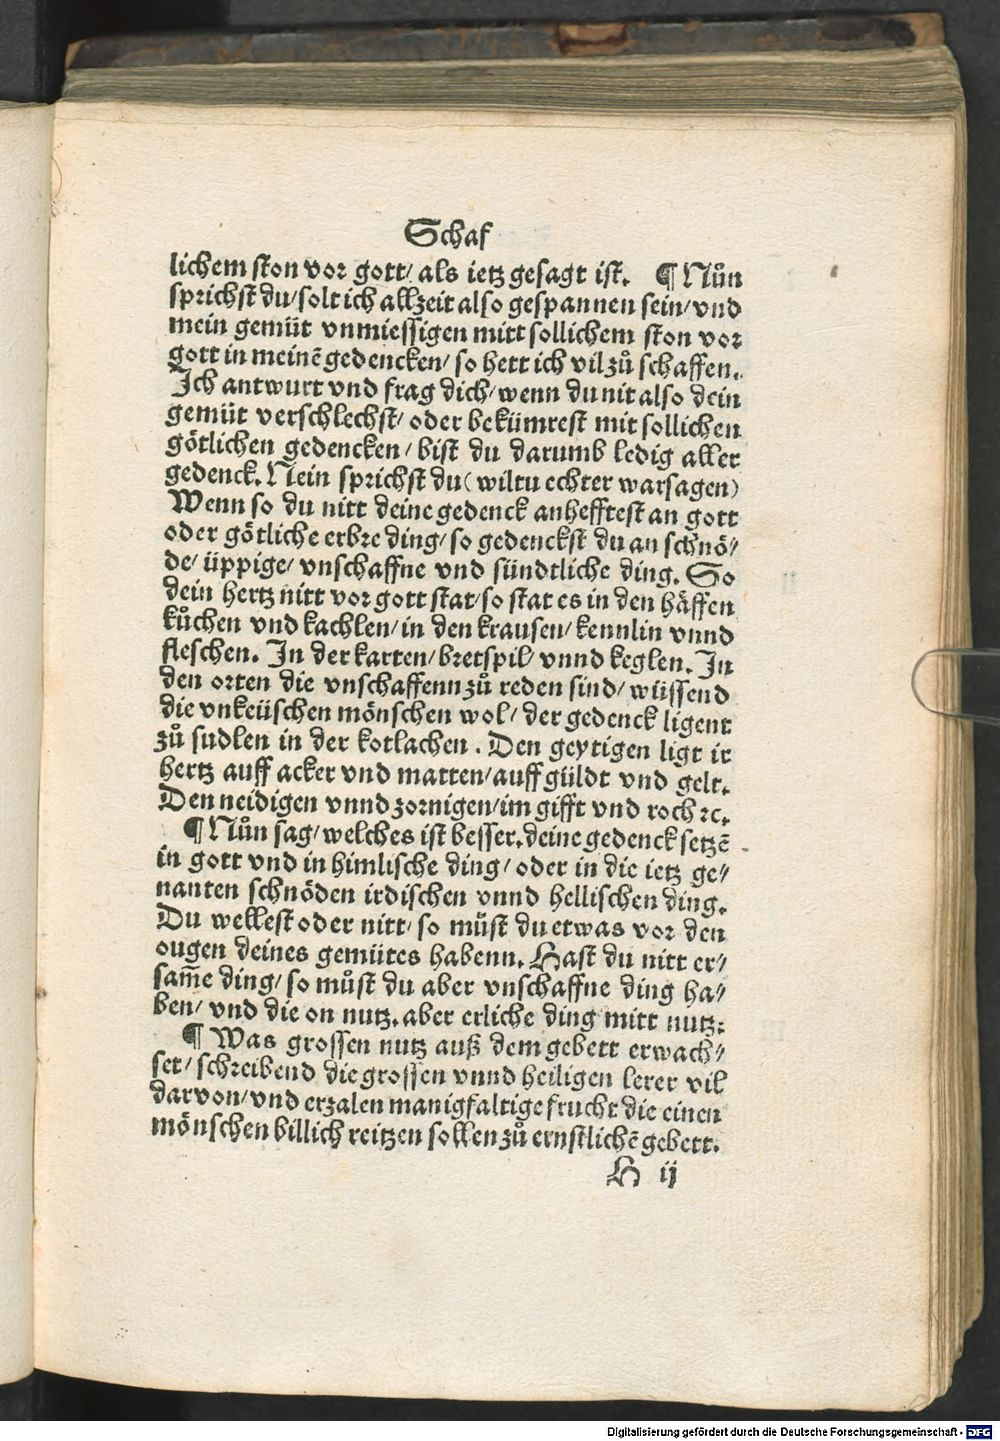 Schaf
lichem ston vor gott/ als ietz gesagt ist. ¶ Nůn
sprichst du/ solt ich allzeit also gespannen sein/ vnd
mein gemüt vnmiessigen mitt sollichem ston vor
gott in meinẽ gedencken/ so hett ich vil zů schaffen.
Ich antwurt vnd frag dich/ wenn du nit also dein
gemüt verschlechst/ oder bekümrest mit sollichen
götlichen gedencken/ bist du darumb ledig aller
gedenck. Nein sprichst du ( wiltu echter warsagen)
Wenn so du nitt deine gedenck anhefftest an gott
oder götliche erbre ding/ so gedenckst du an schnö/
de/ üppige/ vnschaffne vnd sündtliche ding. So
dein hertz nitt vor gott stat/ so stat es in den häffen
kůchen vnd kachlen/ in den krausen/ kennlin vnnd
fleschen. In der karten/ bretspil/ vnnd keglen. In
den orten die vnschaffenn zů reden sind/ wüssend
die vnkeüschen mönschen wol/ der gedenck ligent
zů sudlen in der kotlachen. Den geytigen ligt ir
hertz auff acker vnd matten/ auff güldt vnd gelt.
Den neidigen vnnd zornigen/ im gifft vnd roch ꝛc.
¶ Nůn sag/ welches ist besser. deine gedenck setzẽ
in gott vnd in himlische ding/ oder in die ietz ge/
nanten schnöden irdischen vnnd hellischen ding.
Du wellest oder nitt/ so můst du etwas vor den
ougen deines gemütes habenn. Hast du nitt er/
sam̃e ding/ so můst du aber vnschaffne ding ha/
ben/ vnd die on nutz. aber erliche ding mitt nutz.
¶ Was grossen nutz auß dem gebett erwach/
set/ schreibend die grossen vnnd heiligen lerer vil
darvon/ vnd erzalen manigfaltige frucht die einen
mönschen billich reitzen sollen zů ernstlichẽ gebett.
H ij
Digitalisierung gefördert durch die Deutsche Forschungsgemeinschaft - DFG